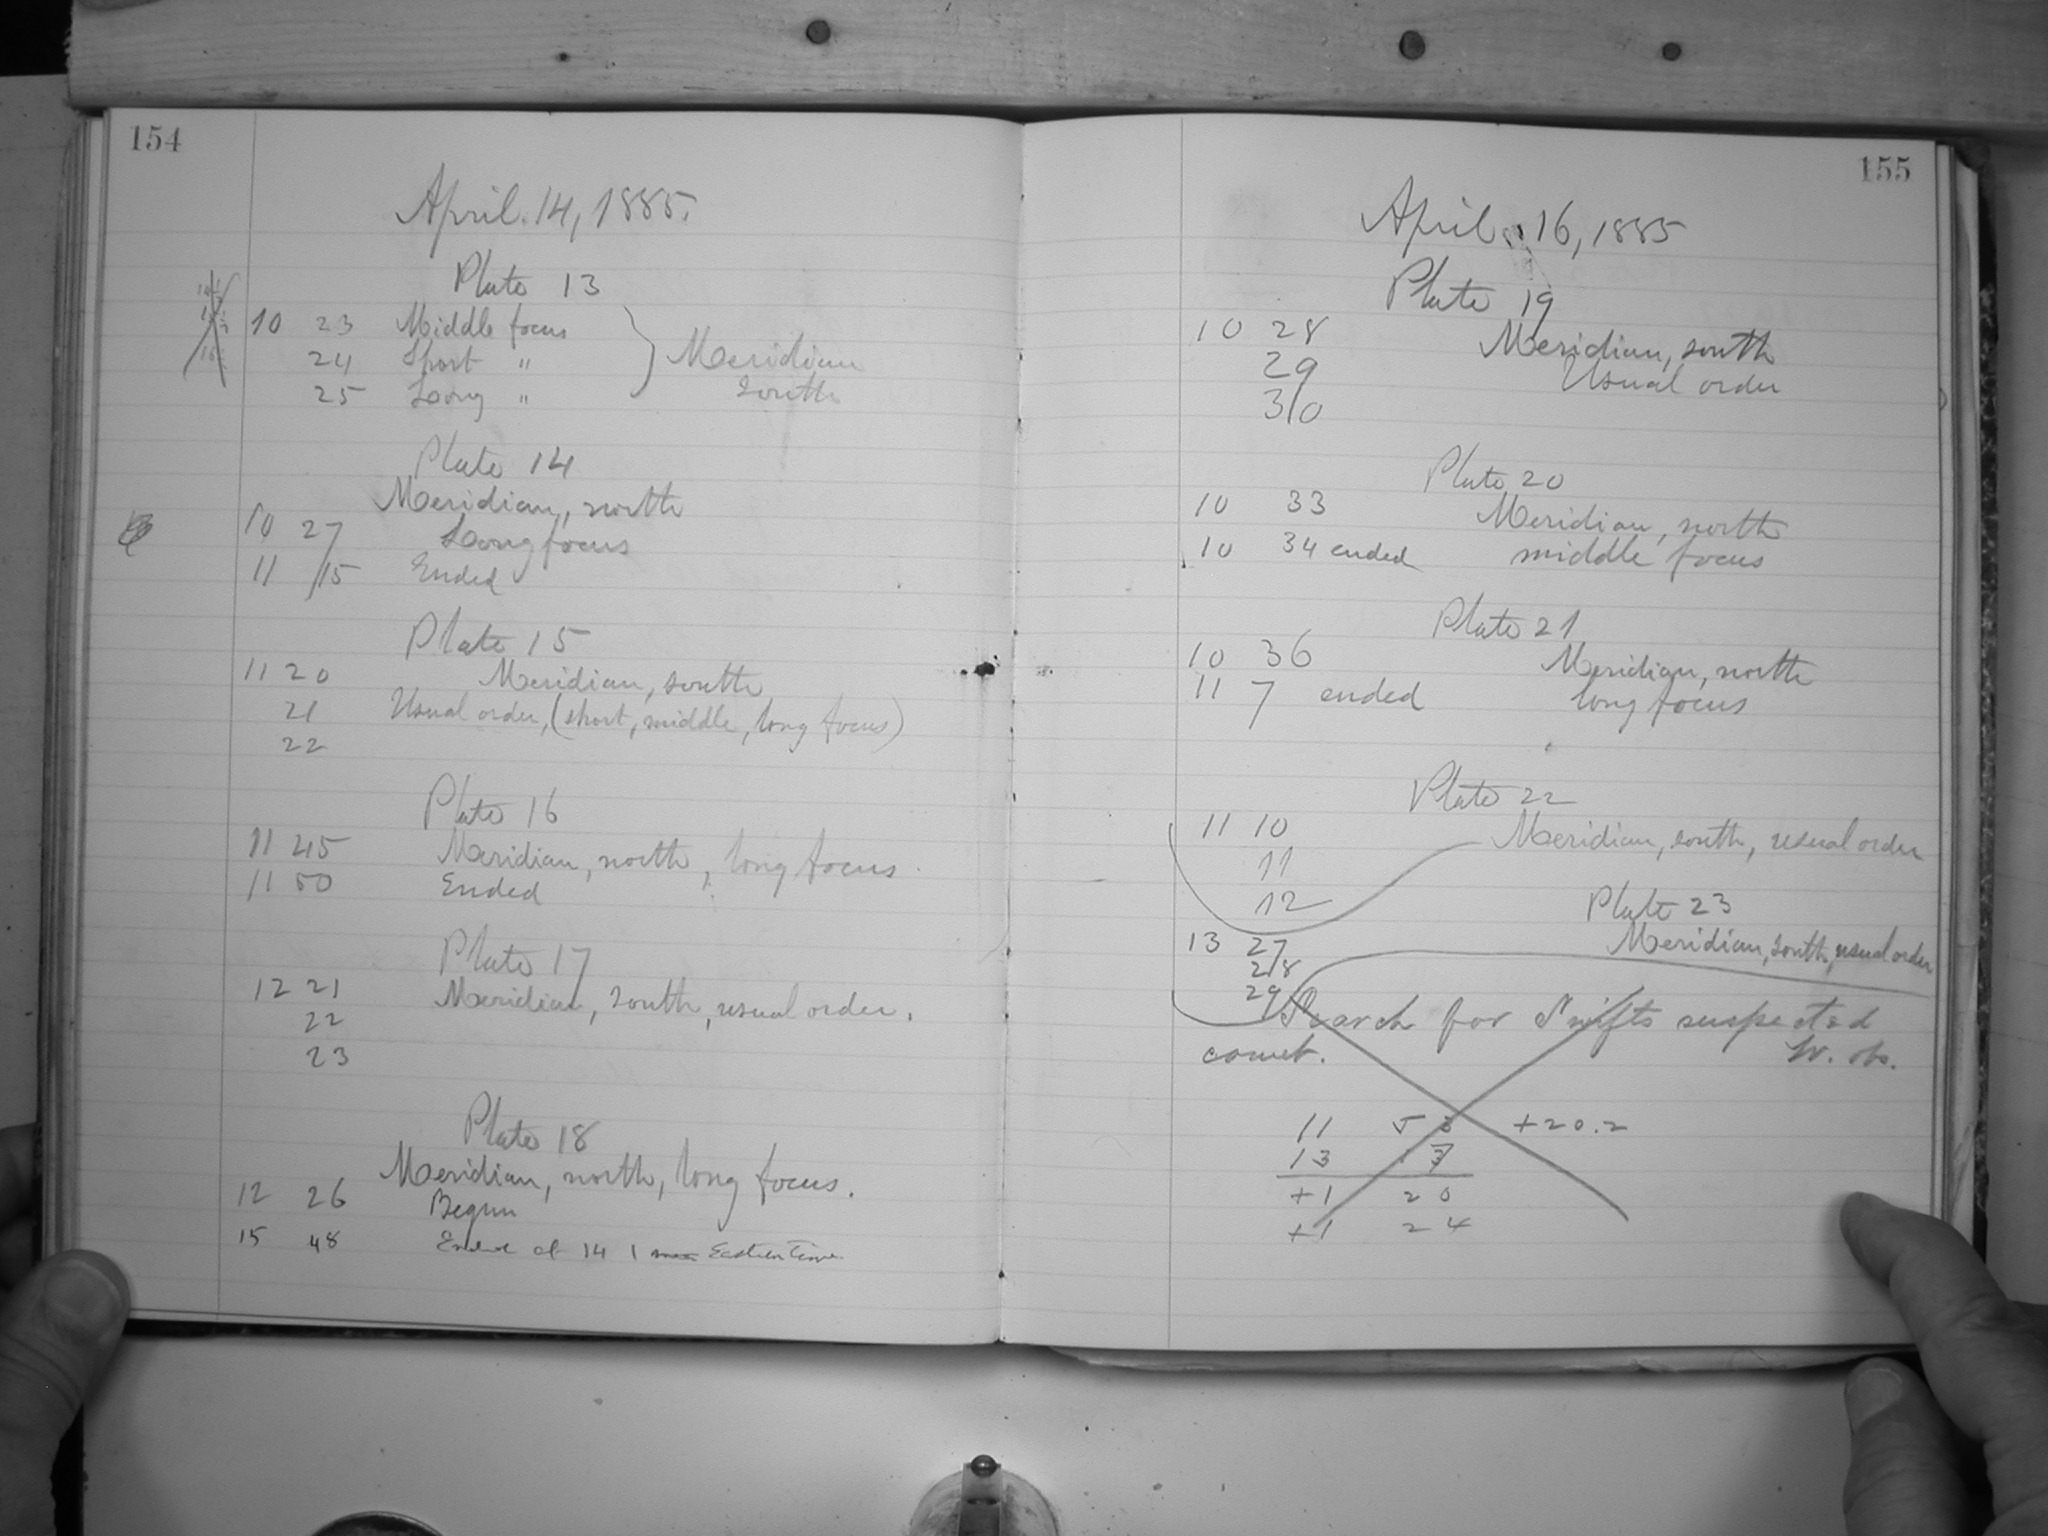 154
April 14, 1885.
Plate 13
10 23 Middle focus
24 Short " Meridian
25 Long " south
Plate 14
Meridian, north
10 27 Long focus
11 15 Ended
Plate 15
11 20 Meridian, south
21 Usual order, (short, middle, long focus)
22
Plate 16
11 45 Meridian, north, long focus.
11 50 Ended
Plate 17
12 21 Meridian, south, usual order.
22
23
Plate 18
Meridian, north, long focus.
12 26 Begun
15 48 at 14 1 Eastern Time
155
April 16, 1885
Plate 19
10 28 Meridian, south
29 Usual order
30
Plate 20
10 33 Meridian, north
10 34 ended middle focus
Plate 21
10 36 Meridian, north
11 7 ended long focus
Plate 22
11 10 Meridian, south, usual order
11
12
Plate 23
13 27 Meridian, south, usual order
28
29
Search for Swifts suspected
comet. W. obs.
11 5 +20.2
13 3
+1 20
+1 24